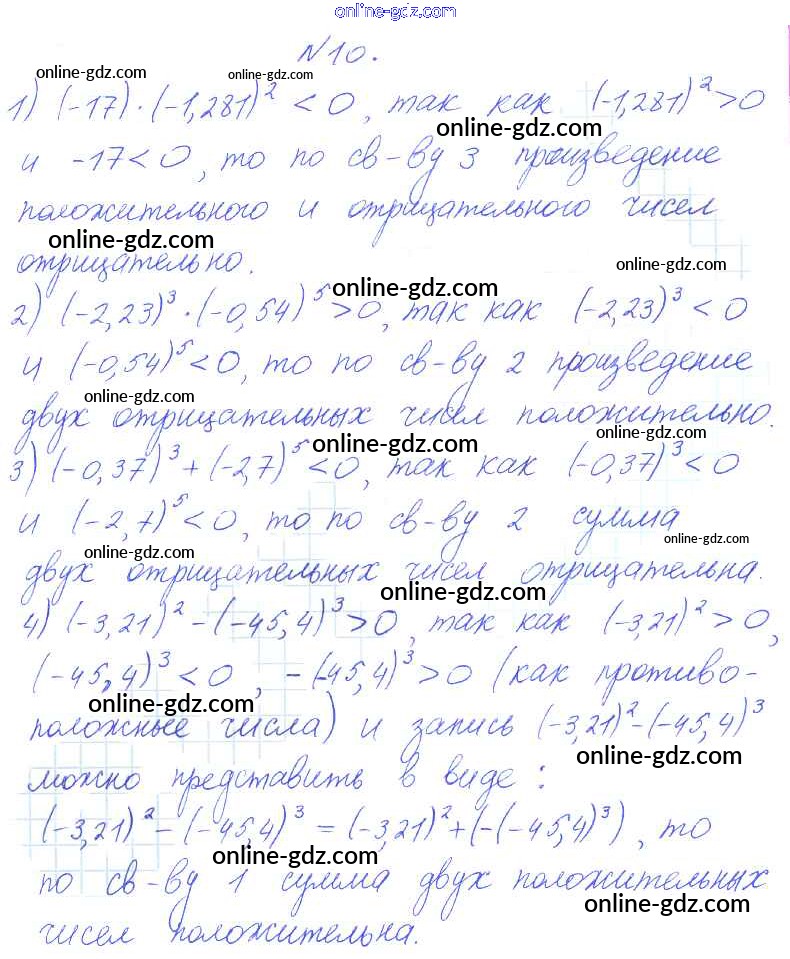 online-gdz.com
№10.
online-gdz.com online-gdz.com
1) (-17)·(-1,281)² < 0, так как (-1,281)² > 0
online-gdz.com
и -17 < 0, то по св-ву 3 произведение
положительного и отрицательного чисел
online-gdz.com
отрицательно.
online-gdz.com
online-gdz.com
2) (-2,23)³·(-0,54)⁵ > 0, так как (-2,23)³ < 0
и (-0,54)⁵ < 0, то по св-ву 2 произведение
online-gdz.com
двух отрицательных чисел положительно.
online-gdz.com
online-gdz.com
3) (-0,37)³ + (-2,7)⁵ < 0, так как (-0,37)³ < 0
и (-2,7)⁵ < 0, то по св-ву 2 сумма
online-gdz.com
online-gdz.com
двух отрицательных чисел отрицательна.
online-gdz.com
4) (-3,21)² - (-45,4)³ > 0, так как (-3,21)² > 0,
(-45,4)³ < 0, -(-45,4)³ > 0 (как противо-
online-gdz.com
положные числа) и запись (-3,21)² - (-45,4)³
online-gdz.com
можно представить в виде:
(-3,21)² - (-45,4)³ = (-3,21)² + (-(-45,4)³), то
online-gdz.com
по св-ву 1 сумма двух положительных
online-gdz.com
чисел положительна.